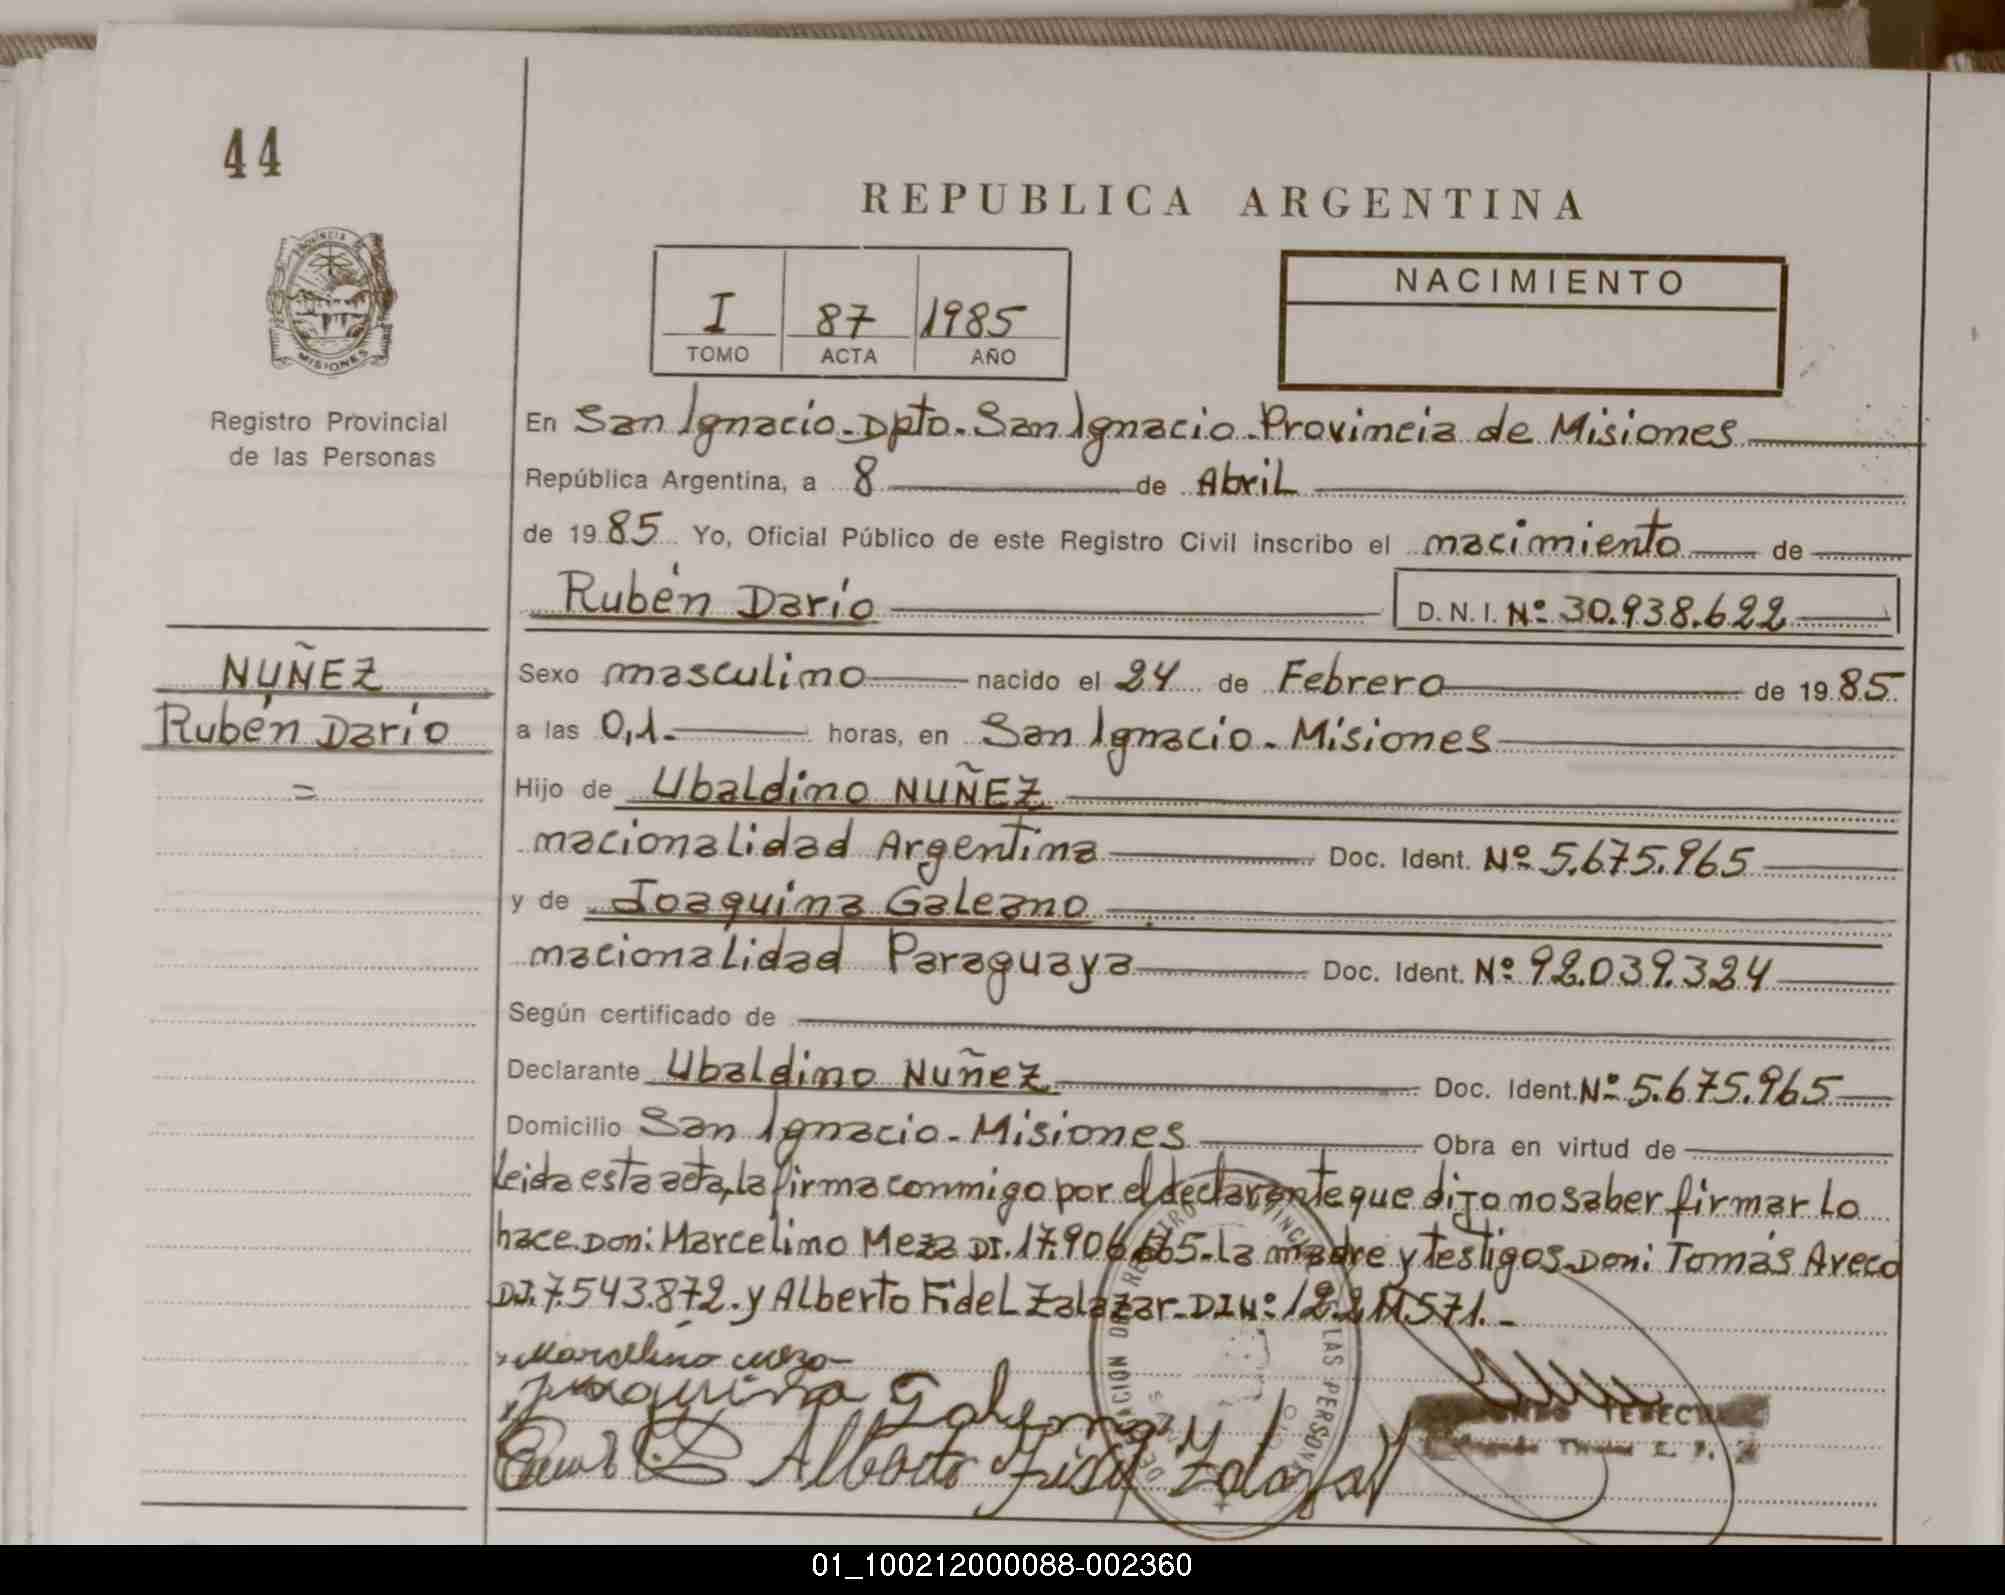 44
REPUBLICA ARGENTINA
PROVINCIA DE
MISIONES
I 87 1985
TOMO ACTA AÑO
NACIMIENTO
Registro Provincial
de las Personas
En San Ignacio - Dpto. San Ignacio - Provincia de Misiones
República Argentina, a 8 de Abril
de 1985 Yo, Oficial Público de este Registro Civil inscribo el nacimiento de
Rubén Darío D.N.I. Nº 30.938.622
NUÑEZ
Rubén Darío
=
Sexo masculino nacido el 24 de Febrero de 1985
a las 0,1.- horas, en San Ignacio - Misiones
Hijo de Ubaldino NUÑEZ
nacionalidad Argentina Doc. Ident. Nº 5.675.965
y de Joaquina Galeano
nacionalidad Paraguaya Doc. Ident. Nº 92.039.324
Según certificado de
Declarante Ubaldino Nuñez Doc. Ident. Nº 5.675.965
Domicilio San Ignacio - Misiones Obra en virtud de
Leida esta acta, la firma conmigo por el declarante que dijo no saber firmar Lo
hace Don: Marcelino Meza DI. 17.906.665 - La madre y testigos Don: Tomás Aveco
DI. 7.543.872. y Alberto Fidel Zalazar - DI Nº 12.211.571.-
Marcelino Meza
Joaquina Galeano
Alberto Fidel Zalazar
LAS PERSONAS
01_100212000088-002360